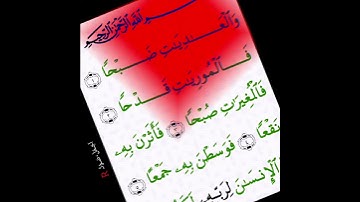 بِسْمِ ٱللَّهِ ٱلرَّحْمَٰنِ ٱلرَّحِيمِ
وَٱلْعَٰدِيَٰتِ ضَبْحًا ١
فَٱلْمُورِيَٰتِ قَدْحًا ٢
فَٱلْمُغِيرَٰتِ صُبْحًا ٣ فَأَثَرْنَ بِهِۦ
نَقْعًا ٤ فَوَسَطْنَ بِهِۦ جَمْعًا ٥
ٱلْإِنسَٰنَ لِرَبِّهِۦ